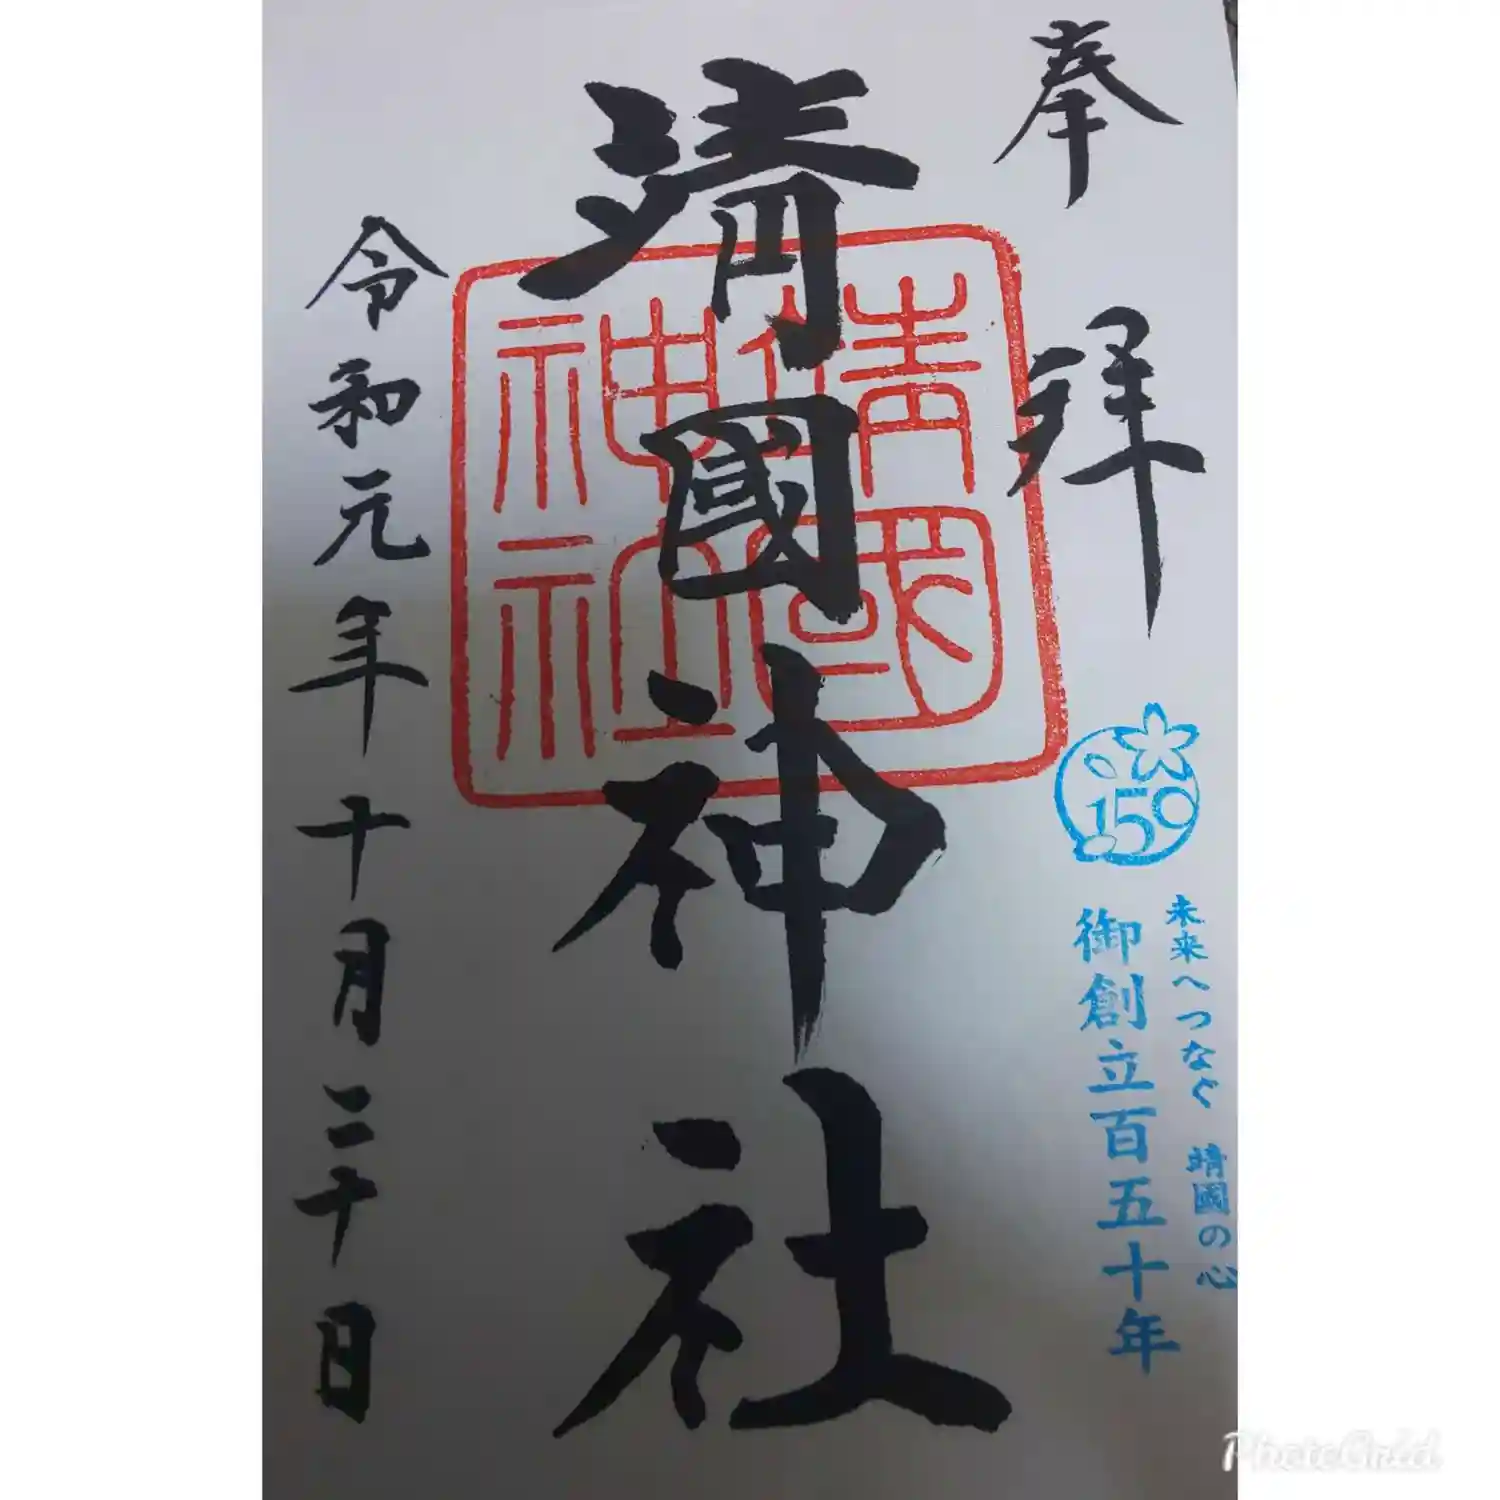 奉拝
靖國神社
靖國
神社
令和元年十月二十日
150
未来へつなぐ 靖國の心
御創立百五十年
PhotoGrid